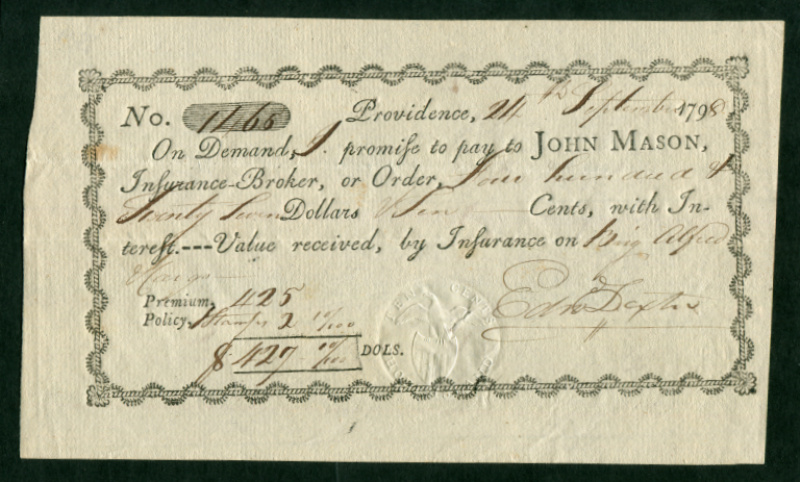 No. 1466 Providence, 24th September 1798
On Demand, I promise to pay to JOHN MASON,
Insurance-Broker, or Order, Four hundred &
Twenty Seven Dollars Ten Cents, with In-
terest.---Value received, by Insurance on Brig Alfred
Cargo
Premium, 425
Policy, Stamps 2 10/100
$ 427 10/100 DOLS.
Edw Dexter
CENTS